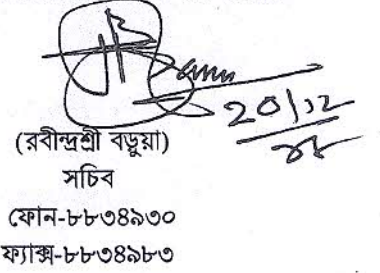 ২০/১২
(রবীন্দ্রশ্রী বড়ুয়া)
সচিব
ফোন-৮৮৩৪৯৩০
ফ্যাক্স-৮৮৩৪৯৮৩